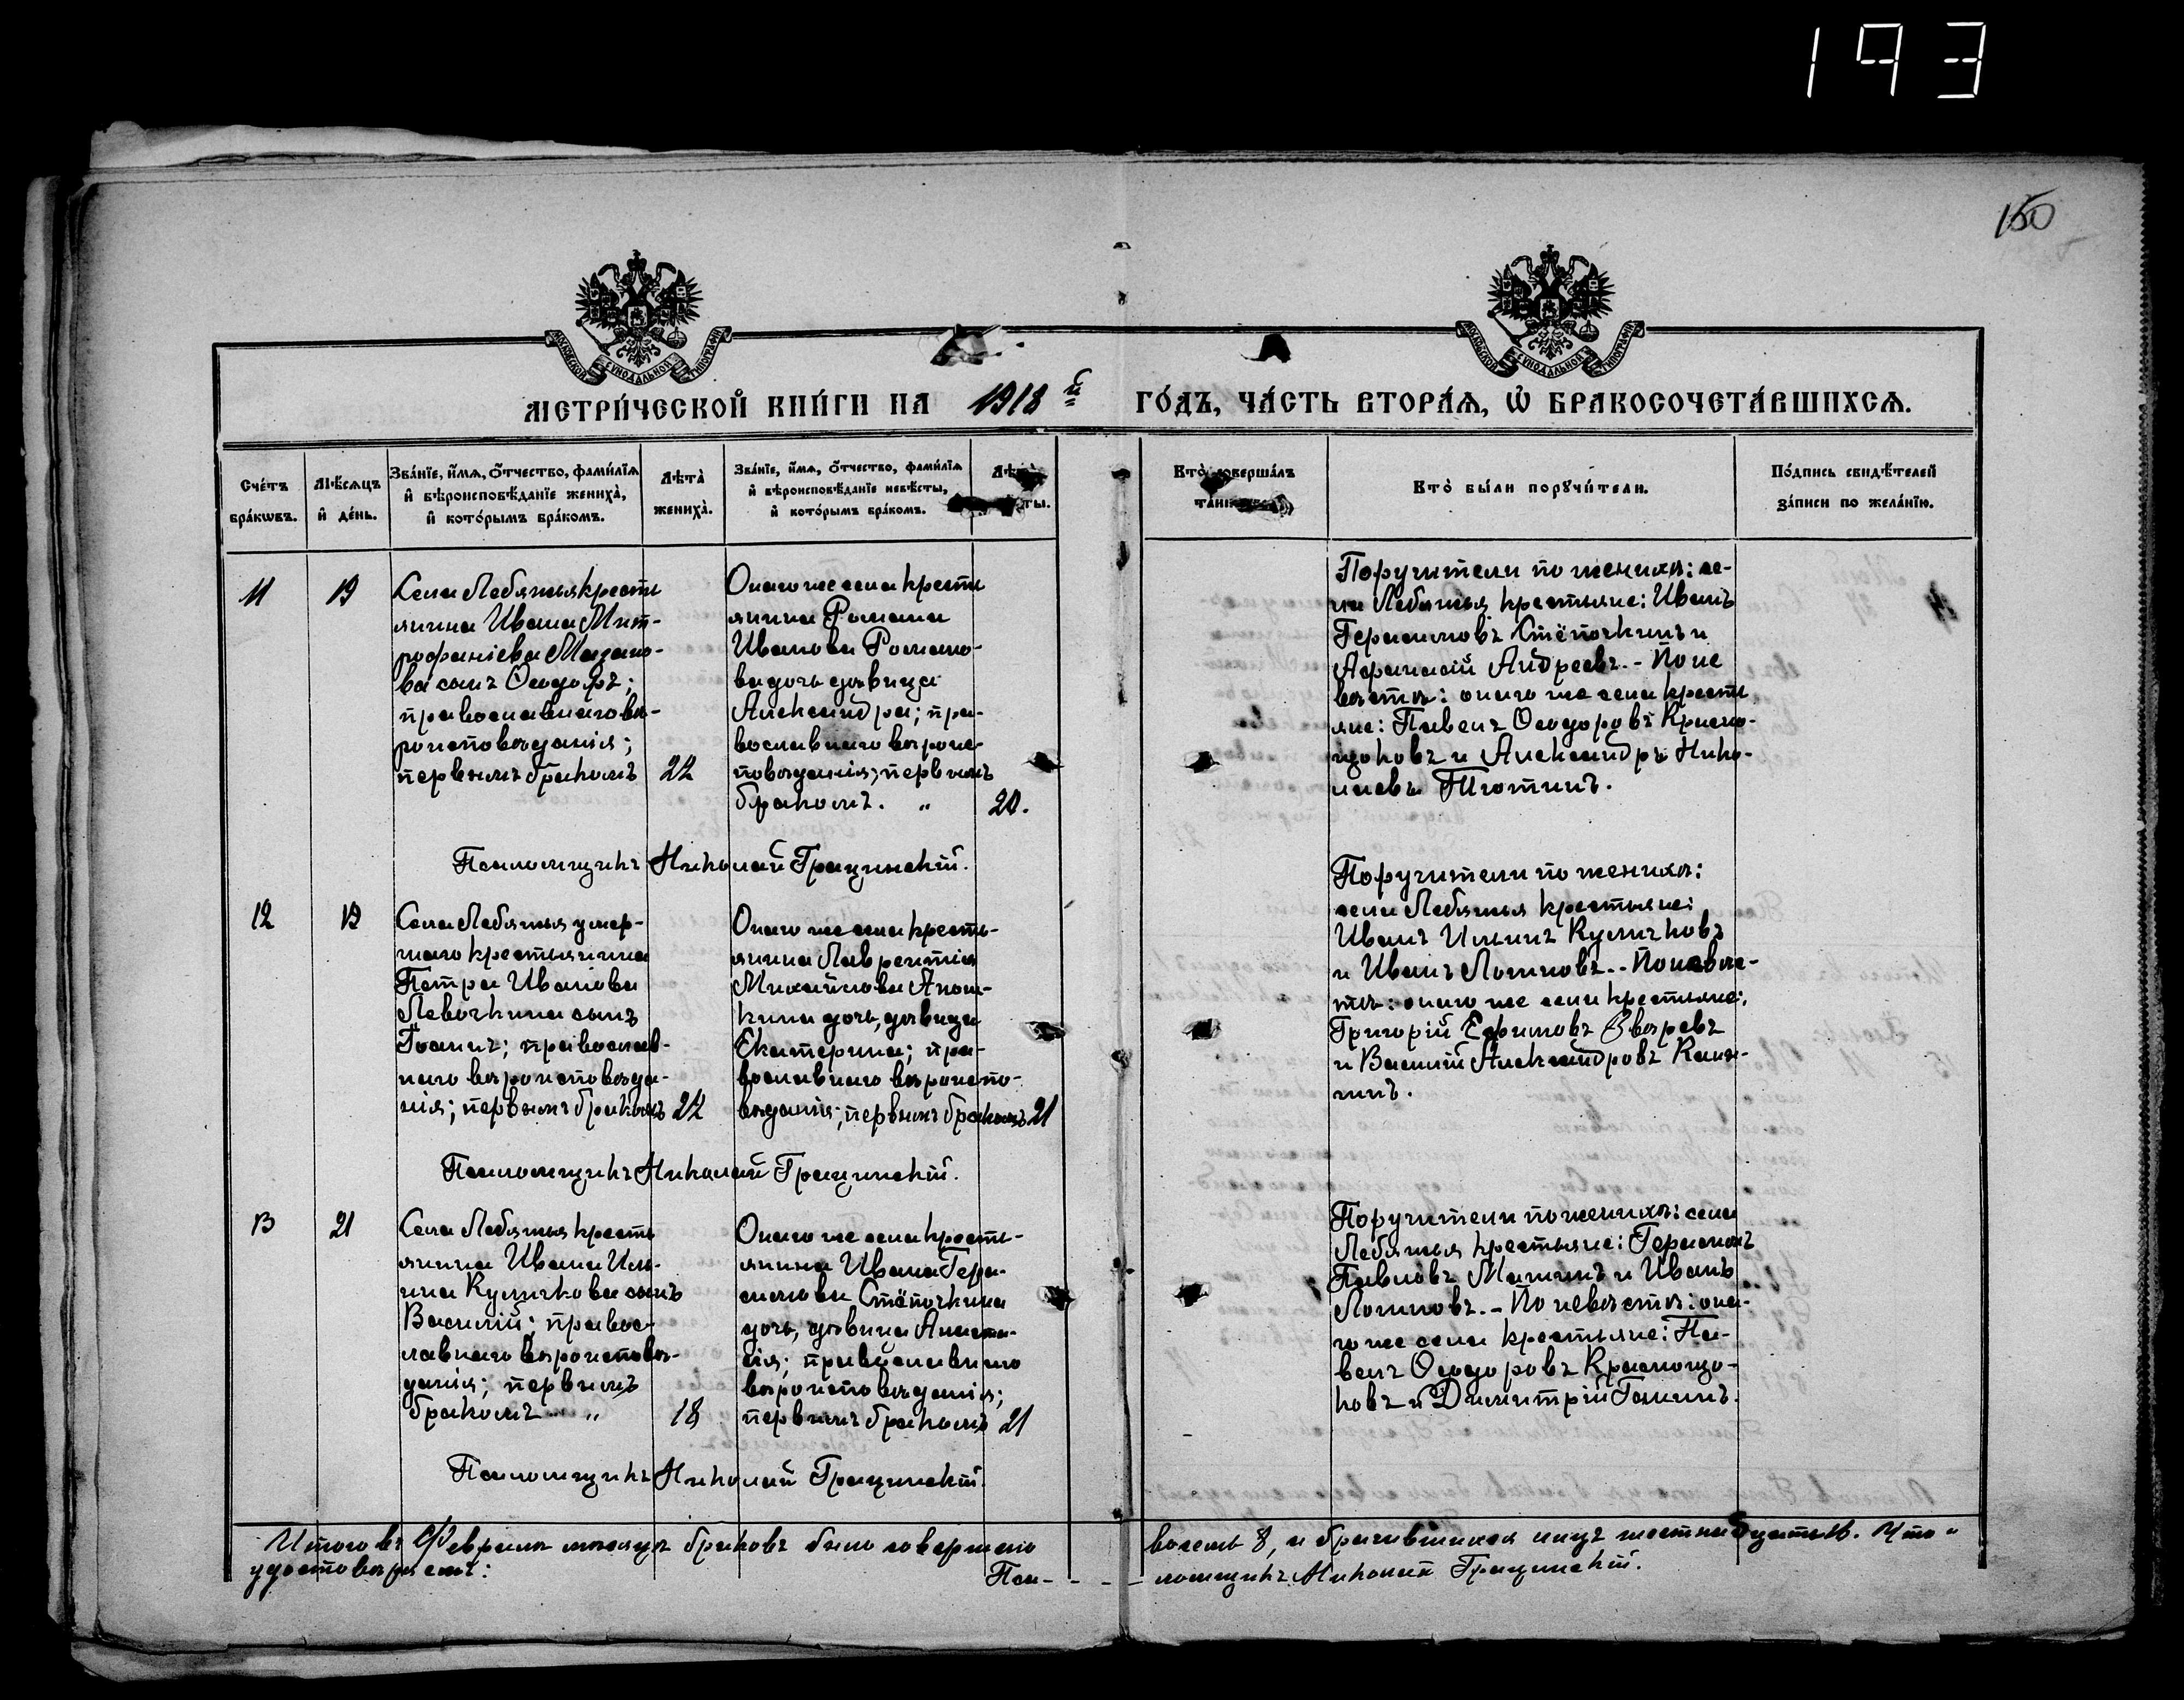 193
150
МОСКОВСКОЙ СѴНОДАЛЬНОЙ ТИПОГРАФІИ
МОСКОВСКОЙ СѴНОДАЛЬНОЙ ТИПОГРАФІИ
МЕТРИ́ЧЕСКОЙ КНИ́ГИ НА 1918 й ГО́ДЪ, ЧА́СТЬ ВТОРА́Я, Ѽ БРАКОСОЧЕТА́ВШИХСѦ.
Сче́тъ бра́кѡвъ.
Мѣ́сѧцъ и҆ де́нь.
Зва́нїе, и҆́мѧ, ѻ҆́тчество, фами́лїѧ и҆ вѣроисповѣ́данїе жениха̀, и҆ кото́рымъ бра́комъ.
Лѣта̀ жениха̀.
Зва́нїе, и҆́мѧ, ѻ҆́тчество, фами́лїѧ и҆ вѣроисповѣ́данїе невѣ́сты, и҆ кото́рымъ бра́комъ.
Кто̀ соверша́лъ
Кто̀ бы́ли порꙋчи́тели.
По́дпись свидѣ́телей за́писи по жела́нїю.
11
19
Села Лебяжья кресть
янина Ивана Мит-
рофаніева Мазано-
ва сынъ Ѳеодоръ;
православнаго вѣ-
роисповѣданія;
первымъ бракомъ
22
Онаго же села кресть
янина Романа
Иванова Романо-
ва дочь дѣвица
Александра; пра-
вославнаго вѣроис-
повѣданія; первымъ
бракомъ. "
20.
Поручители по женихѣ: се-
ла Лебяжья крестьяне: Иванъ
Герасимовъ Стёпочкинъ и
Афанасій Андреевъ. - По не
вѣстѣ: онаго же села кресть
яне: Павелъ Ѳеодоровъ Красно-
щоковъ и Александръ Нико-
лаевъ Тютинъ.
Псаломщикъ Николай Грацинскій.
12
19
Села Лебяжья умер-
шаго крестьянина
Петра Иванова
Левочкина сынъ
Іоаннъ; православ-
наго вѣроисповѣда-
нія; первымъ бракомъ
22
Онаго же села кресть-
янина Лаврентія
Михайлова Анош-
кина дочь, дѣвица
Екатерина; пра-
вославнаго вѣроиспо-
вѣданія; первымъ бракомъ
21
Поручители по женихѣ:
села Лебяжья крестьяне:
Иванъ Ильинъ Куличковъ
и Иванъ Логиновъ. - По невѣс-
тѣ: онаго же села крестьяне:
Григорій Ефимовъ Звѣревъ
и Василій Александровъ Каля-
гинъ.
Псаломщикъ Николай Грацинскій.
13
21
Села Лебяжья кресть
янина Ивана Иль-
ина Куличкова сынъ
Василій; правос-
лавнаго вѣроисповѣ-
данія; первымъ
бракомъ "
18
Онаго же села кресть-
янина Ивана Гера-
симова Стёпочкина
дочь, дѣвица Анаста-
сія; православнаго
вѣроисповѣданія;
первымъ бракомъ
21
Поручители по женихѣ: села
Лебяжья крестьяне: Герасимъ
Павловъ Малинъ и Иванъ
Логиновъ. - По невѣстѣ: она-
го же села крестьяне: Па-
велъ Ѳеодоровъ Краснощо-
ковъ и Димитрій Ганинъ.
Псаломщикъ Николай Грацинскій.
Итого въ Февралѣ мѣсяцѣ браковъ было совершено восемь 8, и брачившихся лицъ шестнадцать 16. Что "
удостовѣряемъ: Пса- - - ломщикъ Николай Грацинскій.